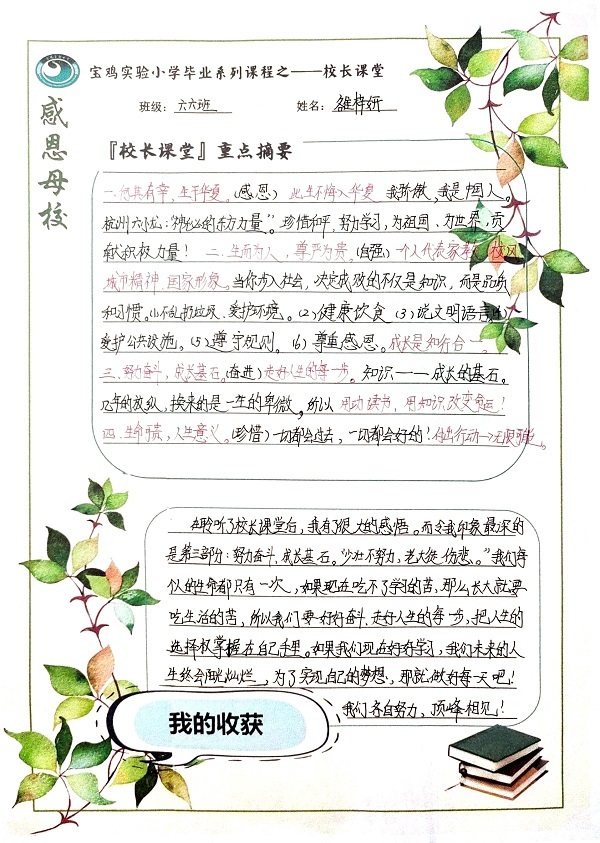 宝鸡实验小学毕业系列课程之——校长课堂
班级：六六班 姓名：雒梓妍
感恩母校
『校长课堂』重点摘要
一.何其有幸，生于华夏。(感恩) 此生不悔入华夏 我骄傲，我是中国人。
杭州六小龙："神秘的东方力量"。珍惜和平，努力学习，为祖国、为世界，贡
献积极力量！ 二.生而为人，尊严为贵。(自强) 一个人代表家教、校风、
城市精神、国家形象。当你步入社会，决定成败的不仅是知识，而是品质
和习惯。(1)不乱扔垃圾、爱护环境。(2)健康饮食 (3)说文明语言
爱护公共设施。(5)遵守规则。(6)尊重感恩。成长是知行合一。
三.努力奋斗，成长基石。(奋进) 走好人生的每一步。知识——成长的基石。
几年的放纵，换来的是一生的卑微。所以 用功读书，用知识改变命运！
四.生命可贵，人生意义。(珍惜) 一切都会过去，一切都会好的！付出行动→无限可能。
在聆听了校长课堂后，我有了很大的感悟。而令我印象最深的
是第三部分：努力奋斗，成长基石。"少壮不努力，老大徒伤悲。"我们每
个人的生命都只有一次，如果现在吃不了学习的苦，那么长大就要
吃生活的苦，所以我们要好好奋斗，走好人生的每一步，把人生的
选择权掌握在自己手里。如果我们现在好好学习，我们未来的人
生终会阳光灿烂，为了实现自己的梦想，那就做好每一天吧！
我们各自努力，顶峰相见！
我的收获